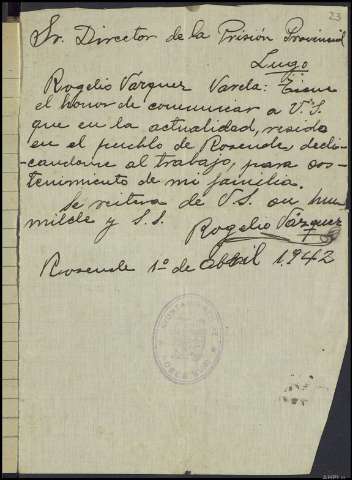 23
Sr. Director de la Prisión Provincial
Lugo
Rogelio Vázquez Varela: Tiene
el honor de comunicar a V.S.
que en la actualidad, resido
en el pueblo de Rosende, dedi-
candome al trabajo, para sos-
tenimiento de mi familia.
Se reitera de V.S. su hu
milde y S.S.
Rogelio Vázquez
Rosende 1º de Abril 1.942